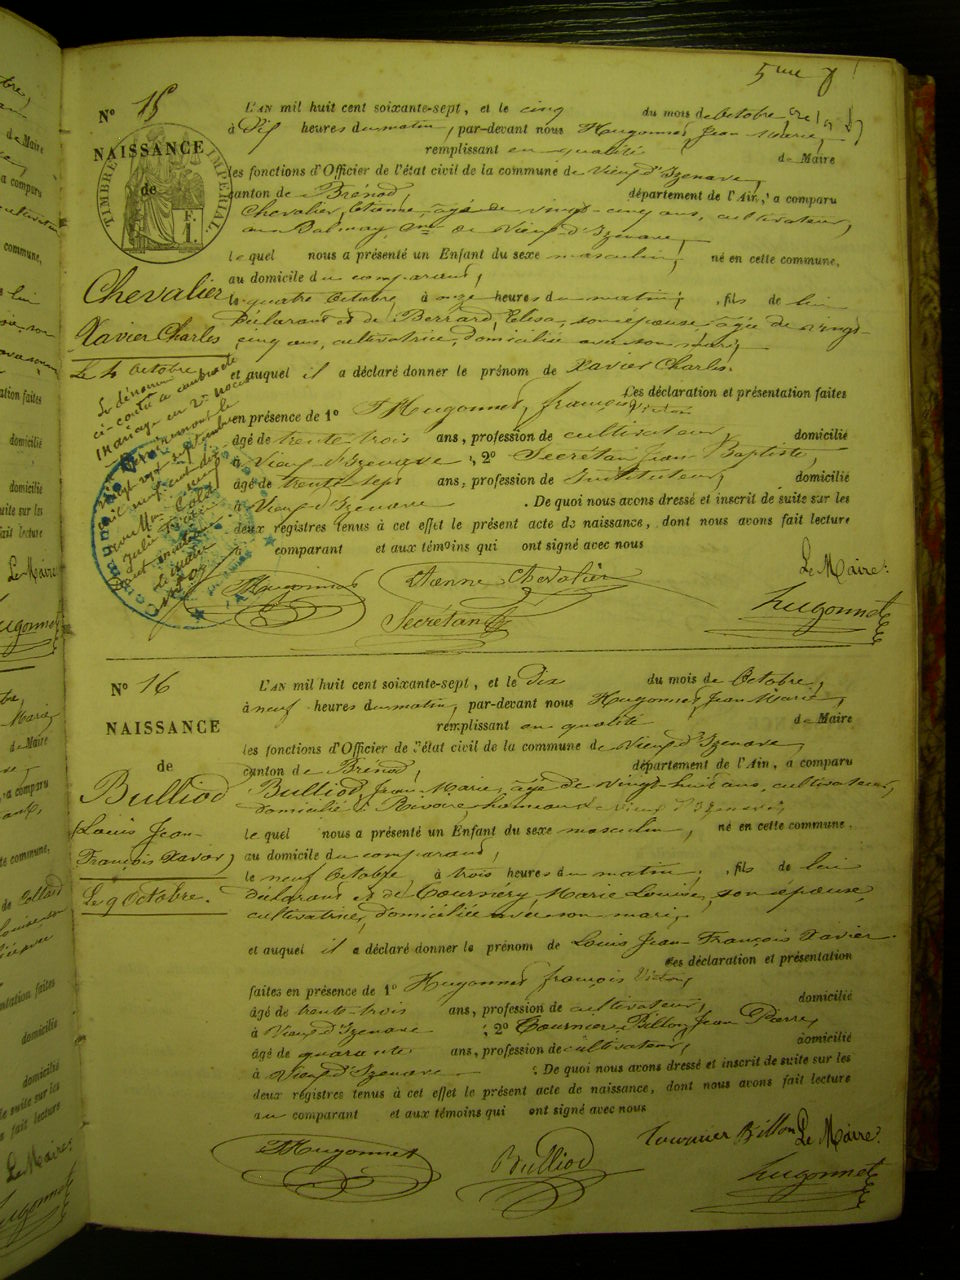 5me
N° 15
NAISSANCE
de
TIMBRE IMPÉRIAL
Chevalier
Xavier Charles
Le 4 Octobre
L'AN mil huit cent soixante-sept, et le cinq du mois de Octobre
à Dix heures du matin, par-devant nous Hugonnet Jean Marie,
remplissant en qualité de Maire
les fonctions d'Officier de l'état civil de la commune de Vieux d'Izenave,
canton de Brénod, département de l'Ain, a comparu
Chevalier, Etienne, âgé de vingt-cinq ans, cultivateur,
au Balmay, cne de Vieux-d'Izenave,
lequel nous a présenté un Enfant du sexe masculin, né en cette commune,
au domicile du comparant,
le quatre Octobre, à onze heures du matin; fils de lui
Déclarant et de Berrard, Elisa, son épouse, âgée de vingt-
cinq ans, cultivatrice, domiciliée avec son mari,
et auquel il a déclaré donner le prénom de Xavier Charles.
Le dénommé
ci-contre a contracté
mariage en 2es noces
Ces déclaration et présentation faites
en présence de 1° Hugonnet, françois Victor
âgé de trente-trois ans, profession de cultivateur, domicilié
à Vieux d'Izenave, 2° Secrétan Jean Baptiste,
âgé de trente sept ans, profession de Instituteur, domicilié
à Vieux d'Izenave. De quoi nous avons dressé et inscrit de suite sur les
deux registres tenus à cet effet le présent acte de naissance, dont nous avons fait lecture
comparant et aux témoins qui ont signé avec nous
Le Maire.
Hugonnet Etienne Chevalier
Secrétan hugonnet
N° 16
NAISSANCE
de
Bulliod
Louis Jean-
François Xavier,
Le 9 Octobre.
L'AN mil huit cent soixante-sept, et le Dix du mois de Octobre,
à neuf heures du matin, par-devant nous Hugonnet Jean Marie,
remplissant en qualité de Maire
les fonctions d'Officier de l'état civil de la commune de Vieux d'Izenave,
canton de Brénod, département de l'Ain, a comparu
Bulliod, Jean-Marie, âgé de vingt-huit ans, cultivateur,
domicilié à
lequel nous a présenté un Enfant du sexe masculin, né en cette commune.
au domicile du comparant,
le neuf Octobre, à trois heures du matin; fils de lui
déclarant et de Tournéry, Marie Louise, son épouse,
cultivatrice, domiciliée avec son mari,
et auquel il a déclaré donner le prénom de Louis Jean François Xavier.
Ces déclaration et présentation
faites en présence de 1° Hugonnet françois Victor,
âgé de trente-trois ans, profession de cultivateur, domicilié
à Vieux d'Izenave; 2° Tournier-Billon, Jean Pierre,
âgé de quarante ans, profession de cultivateur, domicilié
à Vieux d'Izenave. De quoi nous avons dressé et inscrit de suite sur les
deux registres tenus à cet effet le présent acte de naissance, dont nous avons fait lecture
au comparant et aux témoins qui ont signé avec nous
Tournier Billon Le Maire.
Hugonnet Bulliod hugonnet